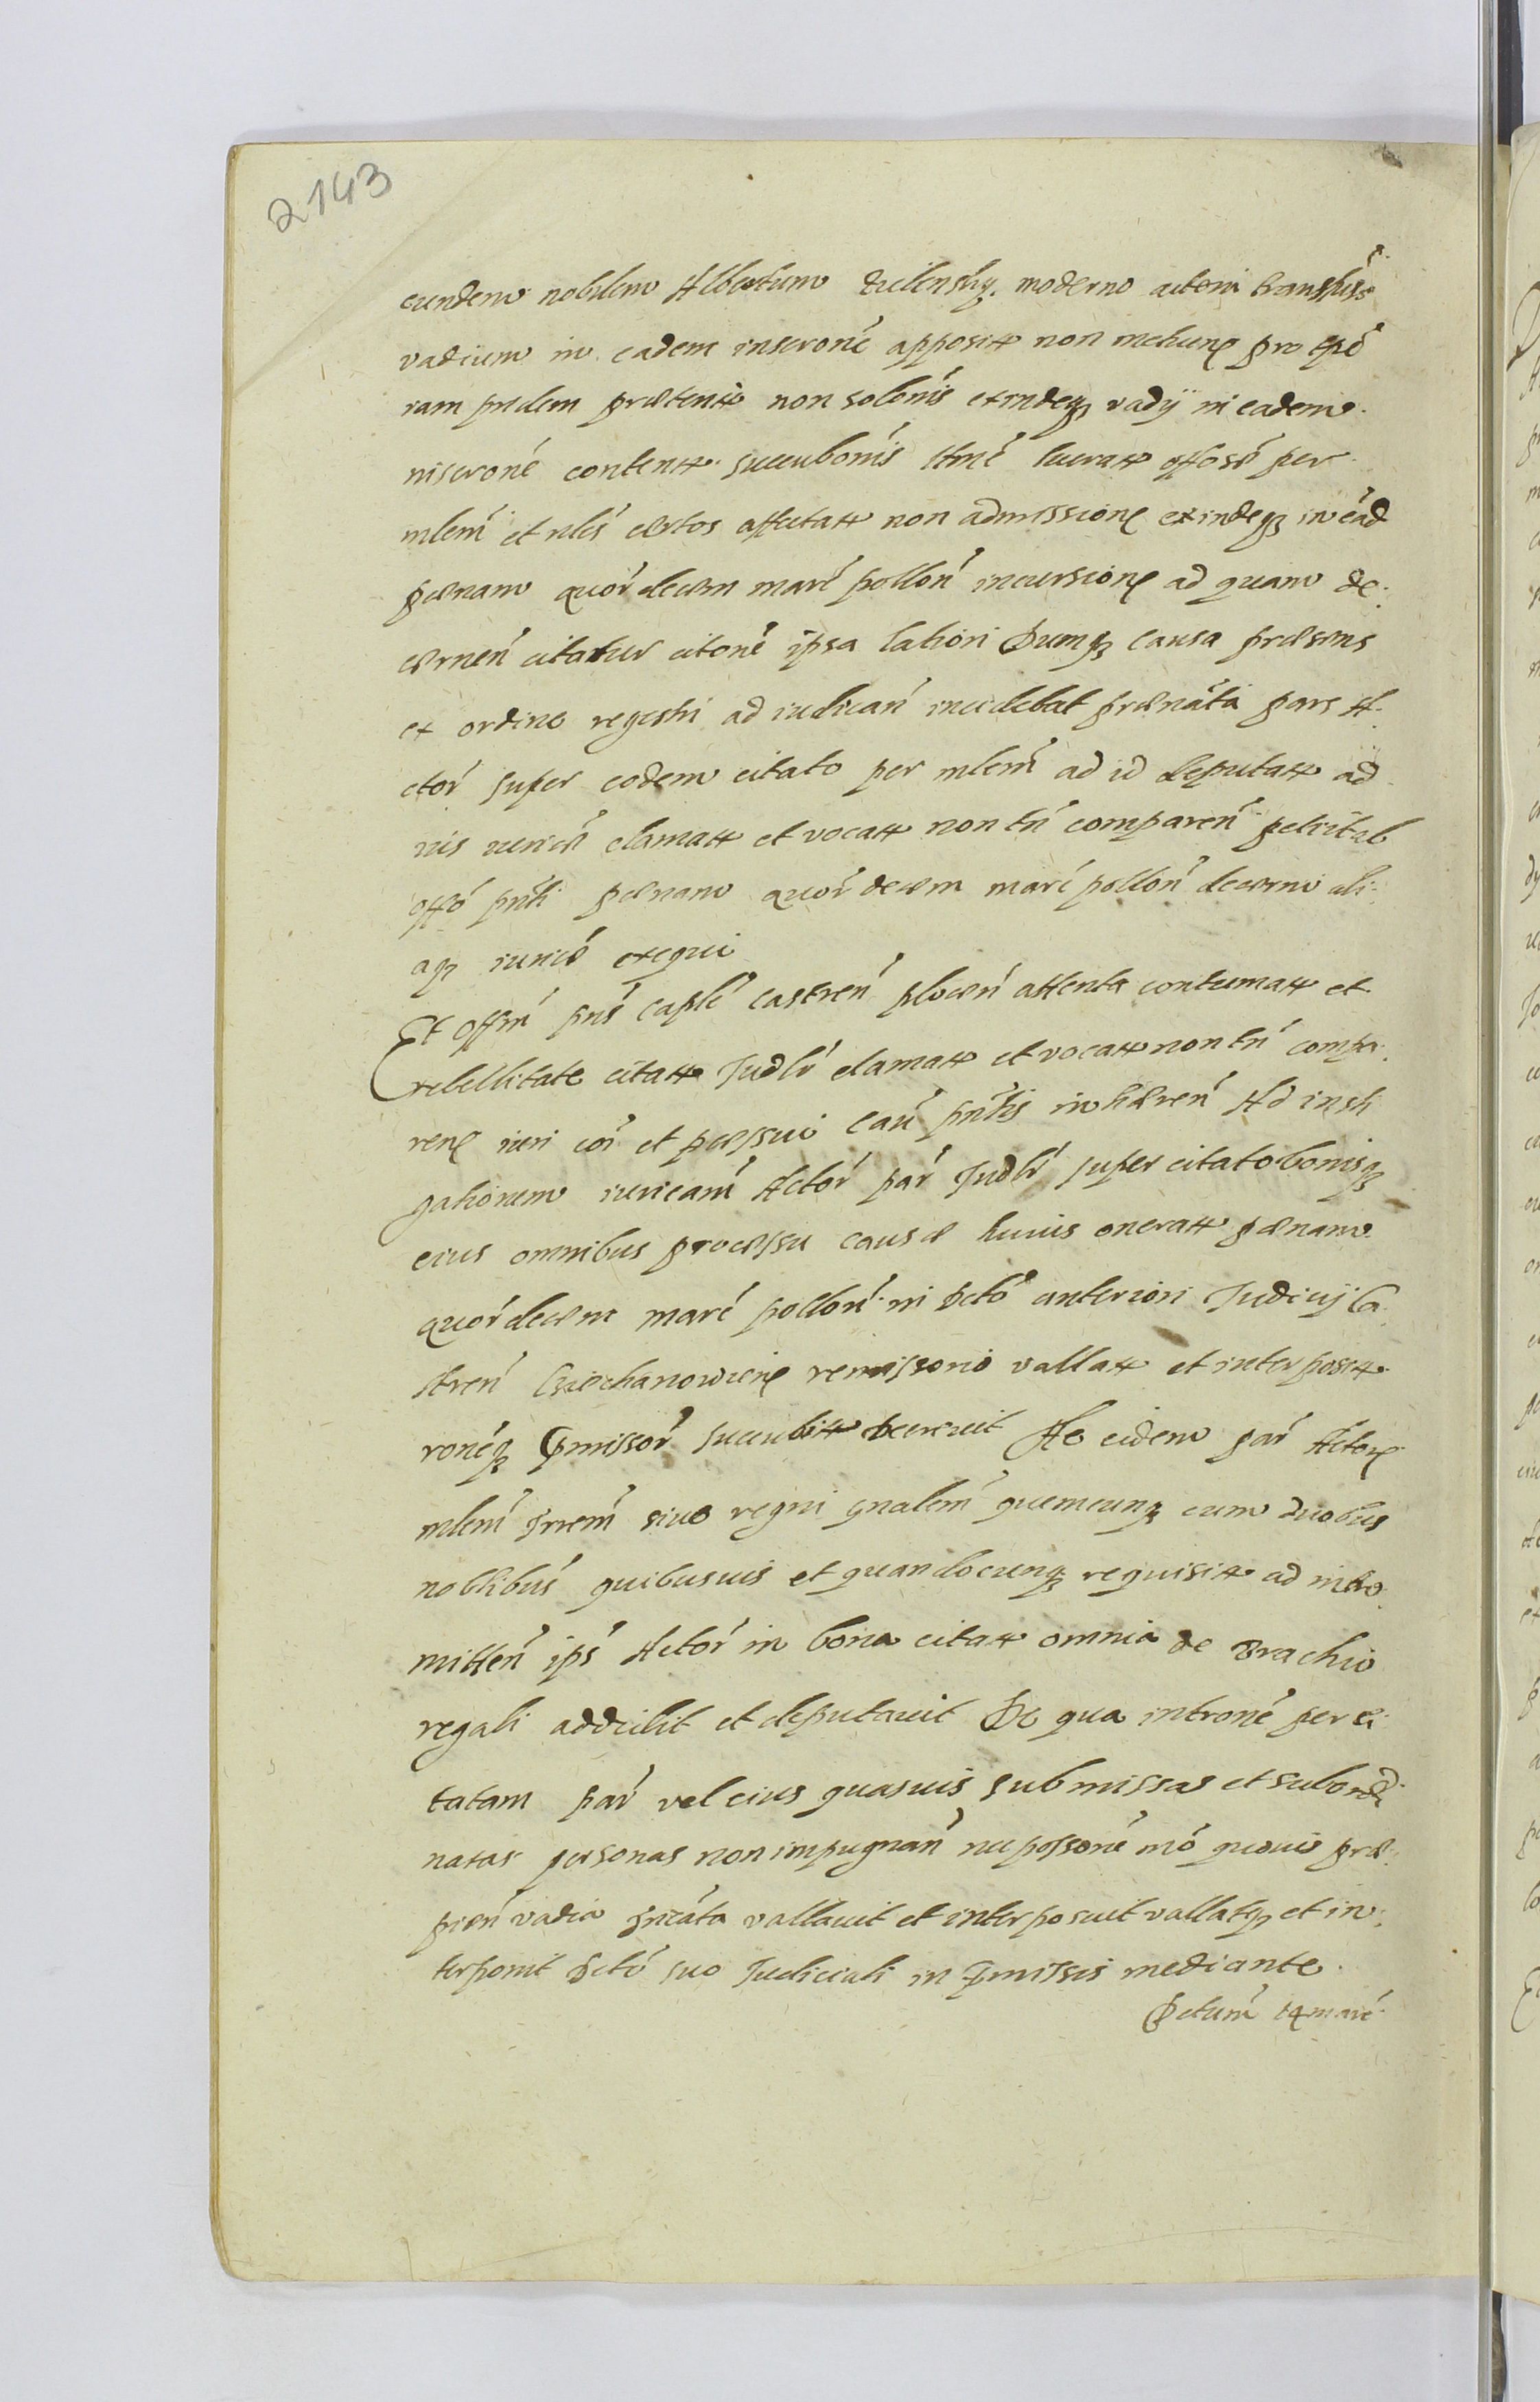 2143
eundem nobilem Albertum moderno actori transfuss
vadium in eadem inscrone apposit non metuen pro tpe
iam pridem prætent non solonis exindeq vadÿ in eadem
inscrone content succubonis stme lucrat offose per
mlem et nles certos affectat non admission exindeq in ead
pænam quordecem marc pollon incursion ad quam de
cernen citatur citone ipsa latiori Dumq causa præsens
ex ordine regestri ad iudican incidebat prænata pars A
ctor super eodem citato per mlem ad id deputat ad
iuris clamat et vocat non tn comparen petit ab
offo pnti pænam quordecem marc pollon decerni ali
aq iurice exequi
Et offm pns caple castren plocen attenta contumat et
rebellitate citat Judlr clamat et vocat non tn compa
ren iuri cor et processui cau pntis inhæren Ad insti
gationem iuricam Actor par Judlr super citato bonisq
eius omnibus processu causæ huius onerat pænam
quordecem marc pollon in dcto anteriori Judicij Ca
stren Czæchanowien remissorio vallat et interposit
roneq pmissor succubit decrevit Ac eidem par Actorex
mlem trrem sive regni gnalem quemcunq cum duobus
noblibus quibusuis et quandocunq requisit ad intro
mitten ips Actor in bona citat omnia de Brachio
regali addidit et deputavit De qua introne per ci
tatam par vel eius quasuis submissas et subordi
natas personas non impugnan nec possone mo quovis præ
pien vadia pncata vallavit et interposuit vallatq et in
terponit dcto suo Judiciali in pmissis mediante
Dctum 14 marc